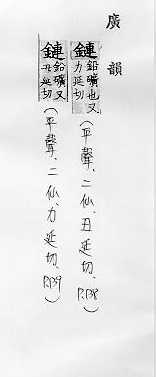 廣韻
鏈 鉛礦也又力延切 (平聲、二仙、丑延切、
鏈 鉛礦又丑延切 (平聲、二仙、力延切、